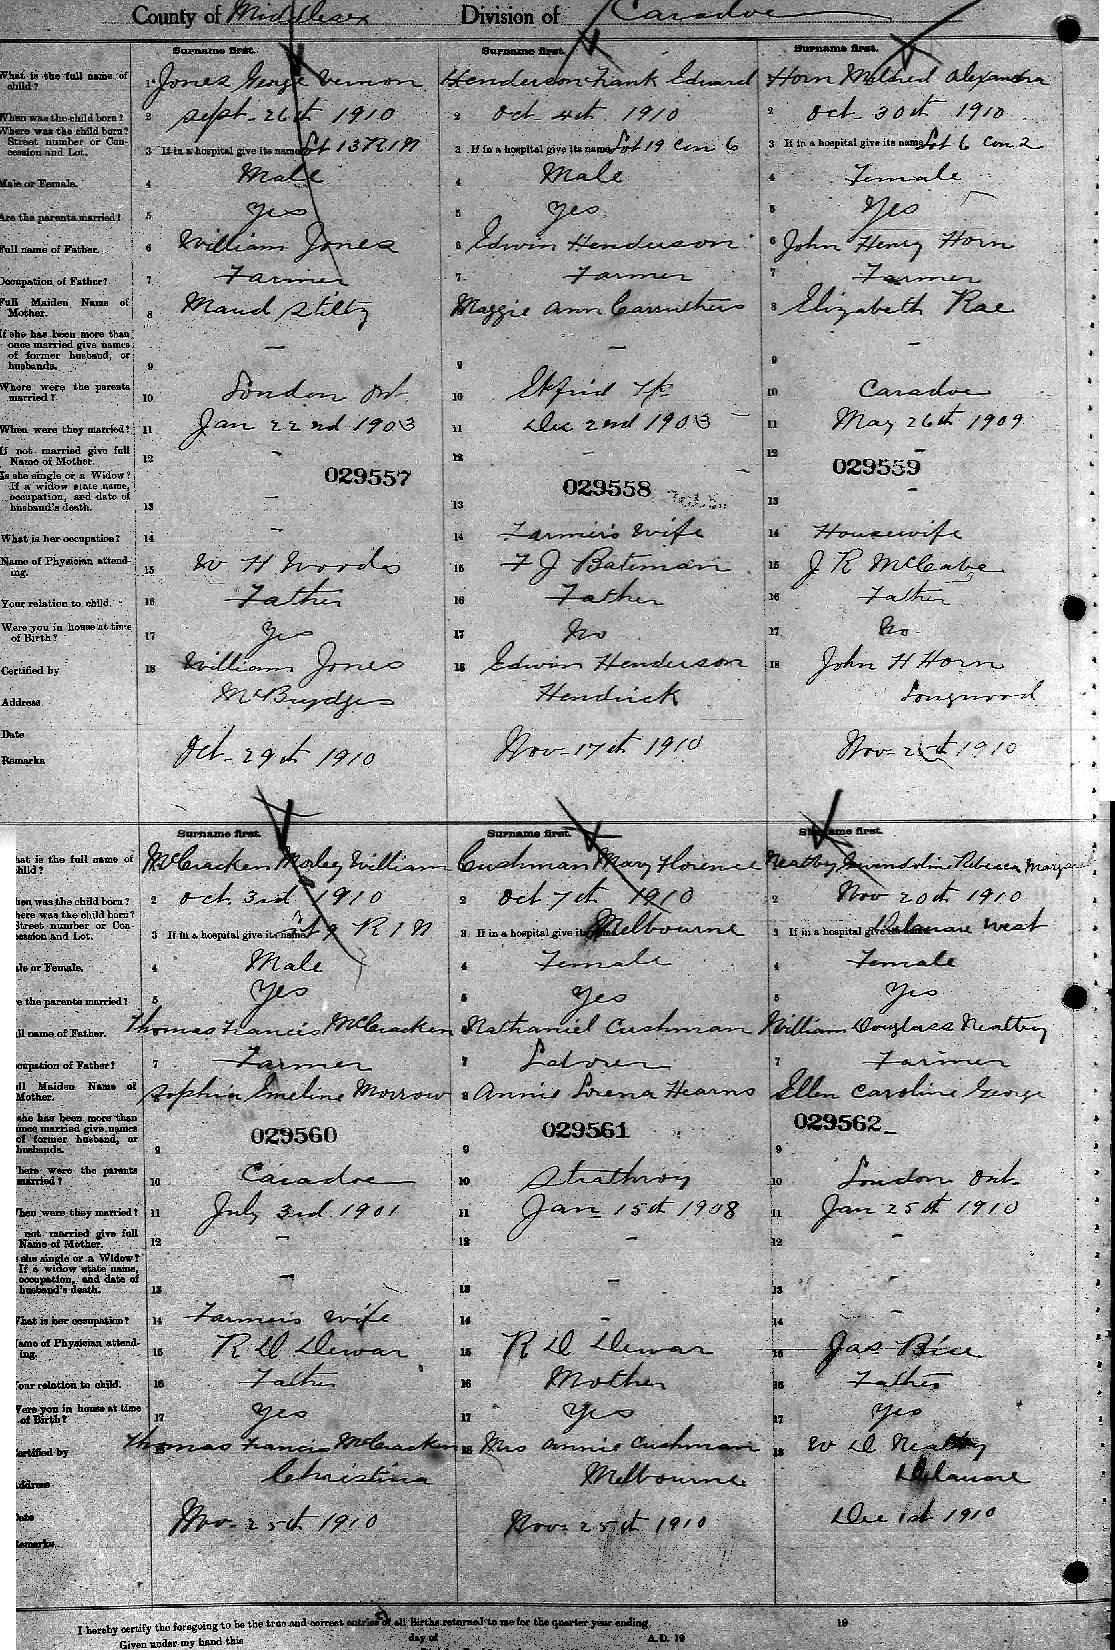 County of Middlesex Division of Caradoc
Surname first. Surname first. Surname first.
What is the full name of child? 1 Jones George Vernon Henderson Frank Edward Horn Mildred Alexandra
When was the child born? 2 Sept. 26th 1910 2 Oct 4th 1910 2 Oct. 30th 1910
Where was the child born? Street number or Concession and Lot. 3 If in a hospital give its name Lot 13 R 1 N 3 If in a hospital give its name Lot 19 Con 6 3 If in a hospital give its name Lot 6 Con 2
Male or Female. 4 Male 4 Male 4 Female
Are the parents married? 5 Yes 5 Yes 5 Yes
Full name of Father. 6 William Jones 6 Edwin Henderson 6 John Henry Horn
Occupation of Father? 7 Farmer 7 Farmer 7 Farmer
Full Maiden Name of Mother. 8 Maud Stiltz Maggie Ann Carruthers 8 Elizabeth Rae
If she has been more than once married give names of former husband, or husbands. 9 - 9 - 9 -
Where were the parents married? 10 London Ont. 10 Ekfrid Tp 10 Caradoc
When were they married? 11 Jan 22nd 1903 11 Dec 2nd 1903 11 May 26th 1909
If not married give full Name of Mother. 12 - 12 - 12 -
029557 029558 029559
Is she single or a Widow? If a widow state name, occupation, and date of husband's death. 13 - 13 13 -
What is her occupation? 14 - 14 Farmer's Wife 14 Housewife
Name of Physician attending. 15 W H Woods 15 F J Bateman 15 J R McCabe
Your relation to child. 16 Father 16 Father 16 Father
Were you in house at time of Birth? 17 Yes 17 No 17 No
Certified by 18 William Jones 18 Edwin Henderson 18 John H Horn
Address McBrydges Hendrick Longwood
Date
Remarks Oct. 29th 1910 Nov. 17th 1910 Nov. 1910
Surname first. Surname first. Surname first.
hat is the full name of hild? McCracken Morley William Cushman Mary Florence Neatby Gwendolin Rebecca
hen was the child born? 2 Oct. 3rd 1910 2 Oct 7th 1910 2 Nov 20th 1910
here was the child born? Street number or Concession and Lot. 3 If in a hospital give its name Lot 9 R 1 N 3 If in a hospital give its Melbourne 3 If in a hospital give Delaware West
le or Female. 4 Male 4 Female 4 Female
e the parents married? 5 Yes 5 Yes 5 Yes
ll name of Father. Thomas Francis McCracken Nathaniel Cushman William Douglass Neatby
cupation of Father? 7 Farmer 7 Laborer 7 Farmer
ll Maiden Name of Mother. Sophia Emeline Morrow 8 Annie Lorena Hearns Ellen Caroline George
she has been more than once married give names of former husband, or husbands. 9 029560 9 029561 9 029562
here were the parents married? 10 Caradoc 10 Strathroy 10 London Ont.
hen were they married? 11 July 3rd 1901 11 Jan 15th 1908 11 Jan 25th 1910
not married give full Name of Mother. 12 - 12 - 12 -
she single or a Widow? If a widow state name, occupation, and date of husband's death. 13 - 13 - 13 -
What is her occupation? 14 Farmer's Wife 14 - 14 -
ame of Physician attending. 15 R D Dewar 15 R D Dewar 15 Jas Bice
our relation to child. 16 Father 16 Mother 16 Father
Were you in house at time of Birth? 17 Yes 17 Yes 17 Yes
ertified by Thomas Francis McCracken 18 Mrs Annie Cushman 18 W D Neatby
ddress Christina Melbourne Delaware
Date Nov. 25th 1910 Nov. 25th 1910 Dec 1st 1910
Remarks
I hereby certify the foregoing to be the true and correct entries of all Births returned to me for the quarter year ending 19
Given under my hand this day of A.D. 19